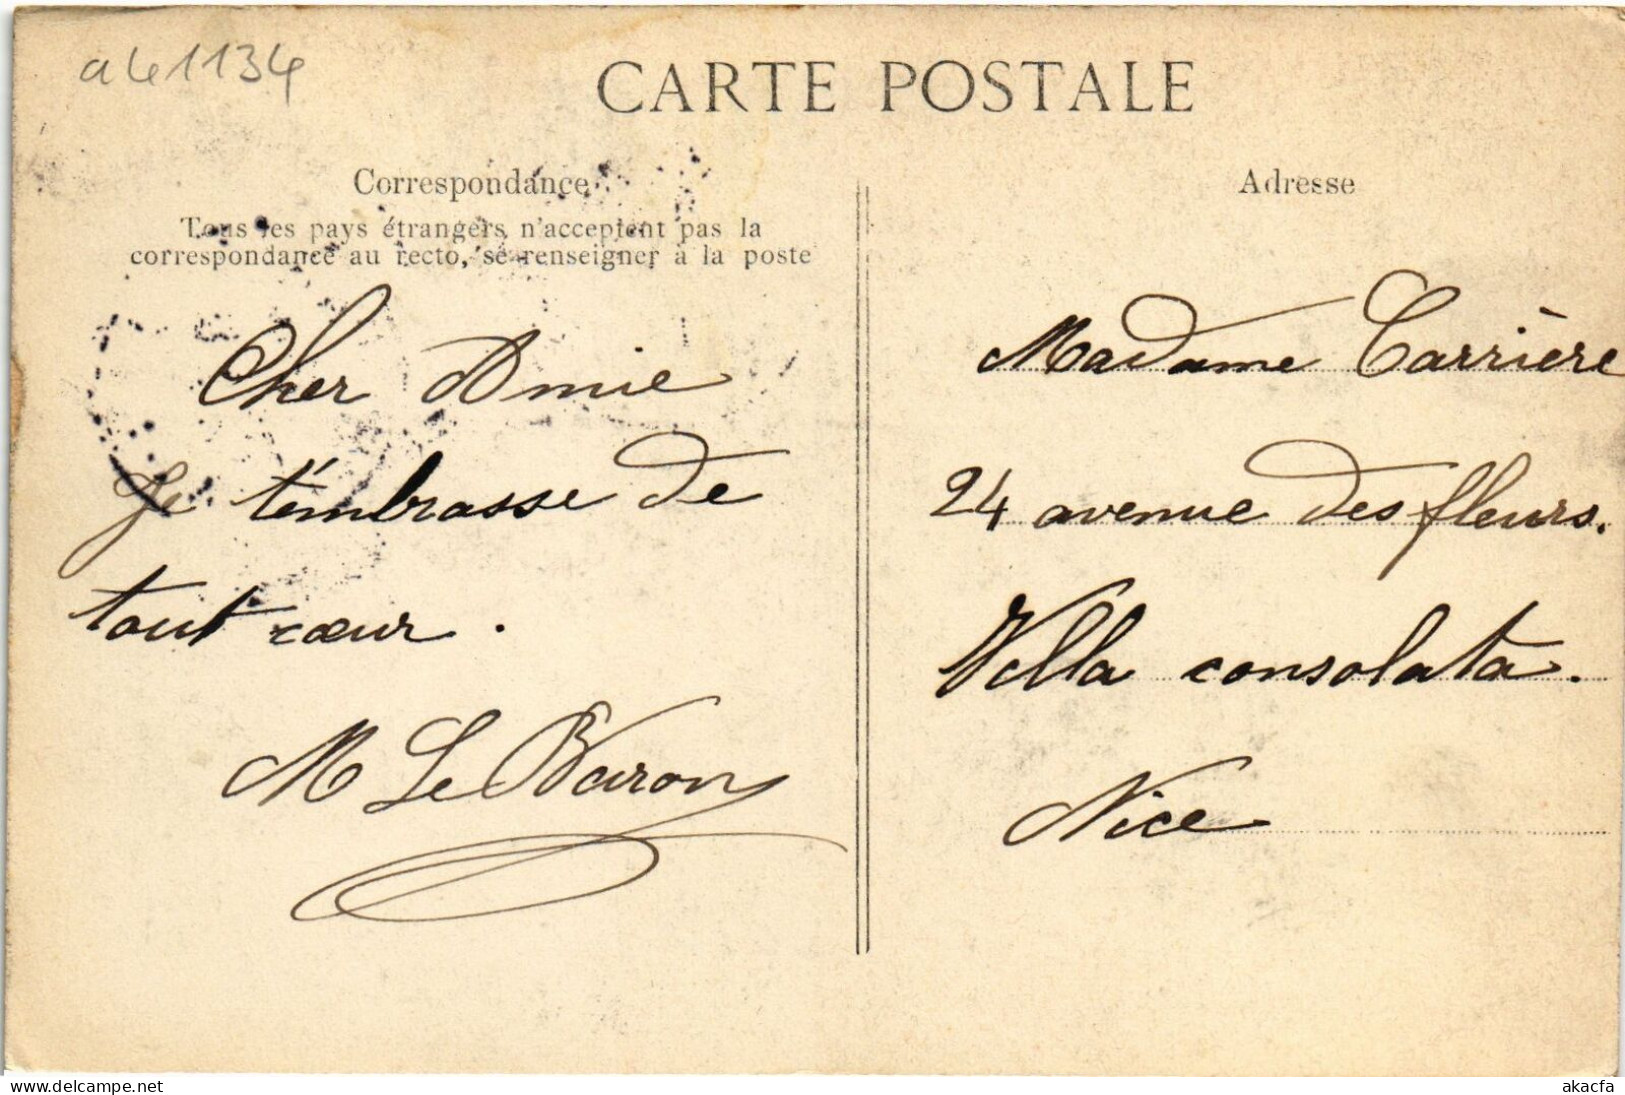 a41134
CARTE POSTALE
Correspondance
Tous les pays étrangers n'acceptent pas la
correspondance au recto, se renseigner à la poste
Cher Amie
Je t'embrasse de
tout cœur.
M Le Baron
Adresse
Madame Carrière
24 avenue des fleurs.
Villa consolata.
Nice
www.delcampe.net
akacfa